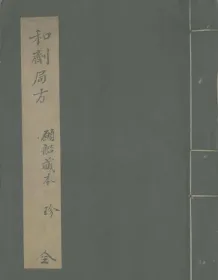 和劑局方
藏本 珍
全